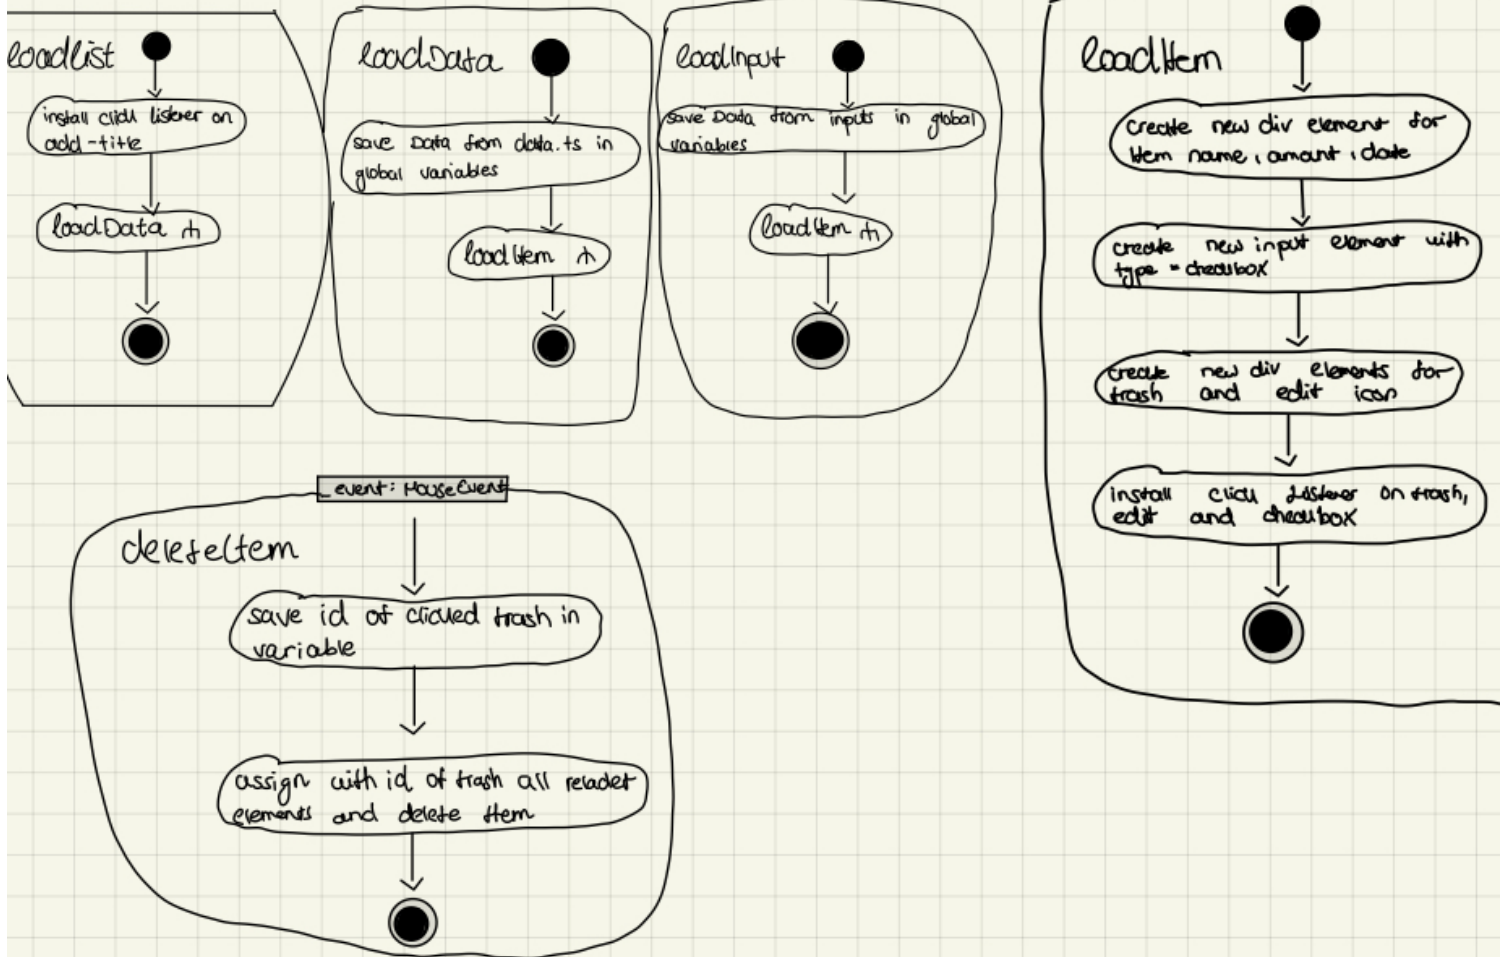 loadlist
install click listener on
add-title
loadData
loadData
save Data from data.ts in
global variables
loadItem
loadInput
save Data from inputs in global
variables
loadItem
loadItem
create new div element for
Item name, amount, date
create new input element with
type = checkbox
create new div elements for
trash and edit icon
install click Listener on trash,
edit and checkbox
_event: MouseEvent
deleteItem
save id of clicked trash in
variable
assign with id of trash all reladet
elements and delete Item